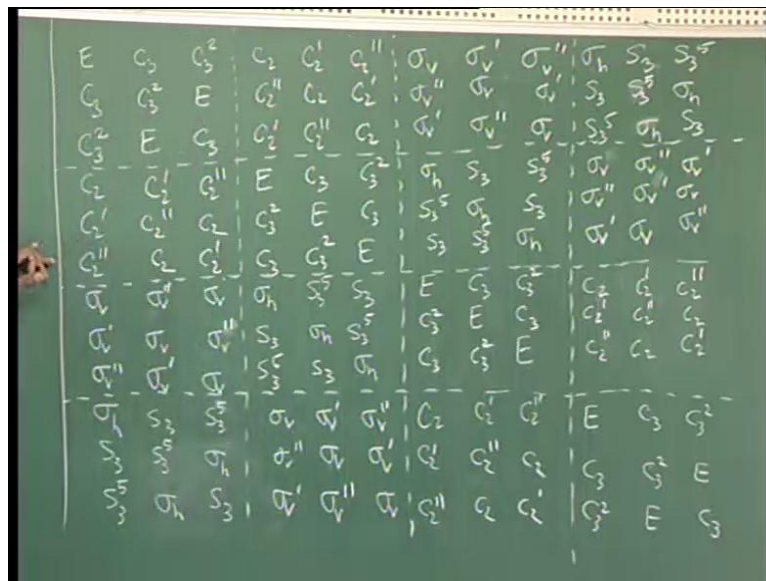 E C₃ C₃² C₂ C₂' C₂'' σᵥ σᵥ' σᵥ'' σₕ S₃ S₃⁵
C₃ C₃² E C₂'' C₂ C₂' σᵥ'' σᵥ σᵥ' S₃ S₃⁵ σₕ
C₃² E C₃ C₂' C₂'' C₂ σᵥ' σᵥ'' σᵥ S₃⁵ σₕ S₃
C₂ C₂' C₂'' E C₃ C₃² σₕ S₃ S₃⁵ σᵥ σᵥ'' σᵥ'
C₂' C₂'' C₂ C₃² E C₃ S₃⁵ σₕ S₃ σᵥ'' σᵥ' σᵥ
C₂'' C₂ C₂' C₃ C₃² E S₃ S₃⁵ σₕ σᵥ' σᵥ σᵥ''
σᵥ σᵥ σₕ S₃⁵ S₃ E C₃ C₃² C₂ C₂' C₂''
σᵥ' σᵥ σᵥ'' S₃ σₕ S₃⁵ C₃² E C₃ C₂' C₂'' C₂
σᵥ'' σᵥ' σᵥ S₃⁵ S₃ σₕ C₃ C₃² E C₂'' C₂ C₂'
σₕ S₃ S₃⁵ σᵥ σᵥ' σᵥ'' C₂ C₂' C₂'' E C₃ C₃²
S₃ S₃⁵ σₕ σᵥ'' σᵥ σᵥ' C₂' C₂'' C₂ C₃ C₃² E
S₃⁵ σₕ S₃ σᵥ' σᵥ'' σᵥ C₂'' C₂ C₂' C₃² E C₃